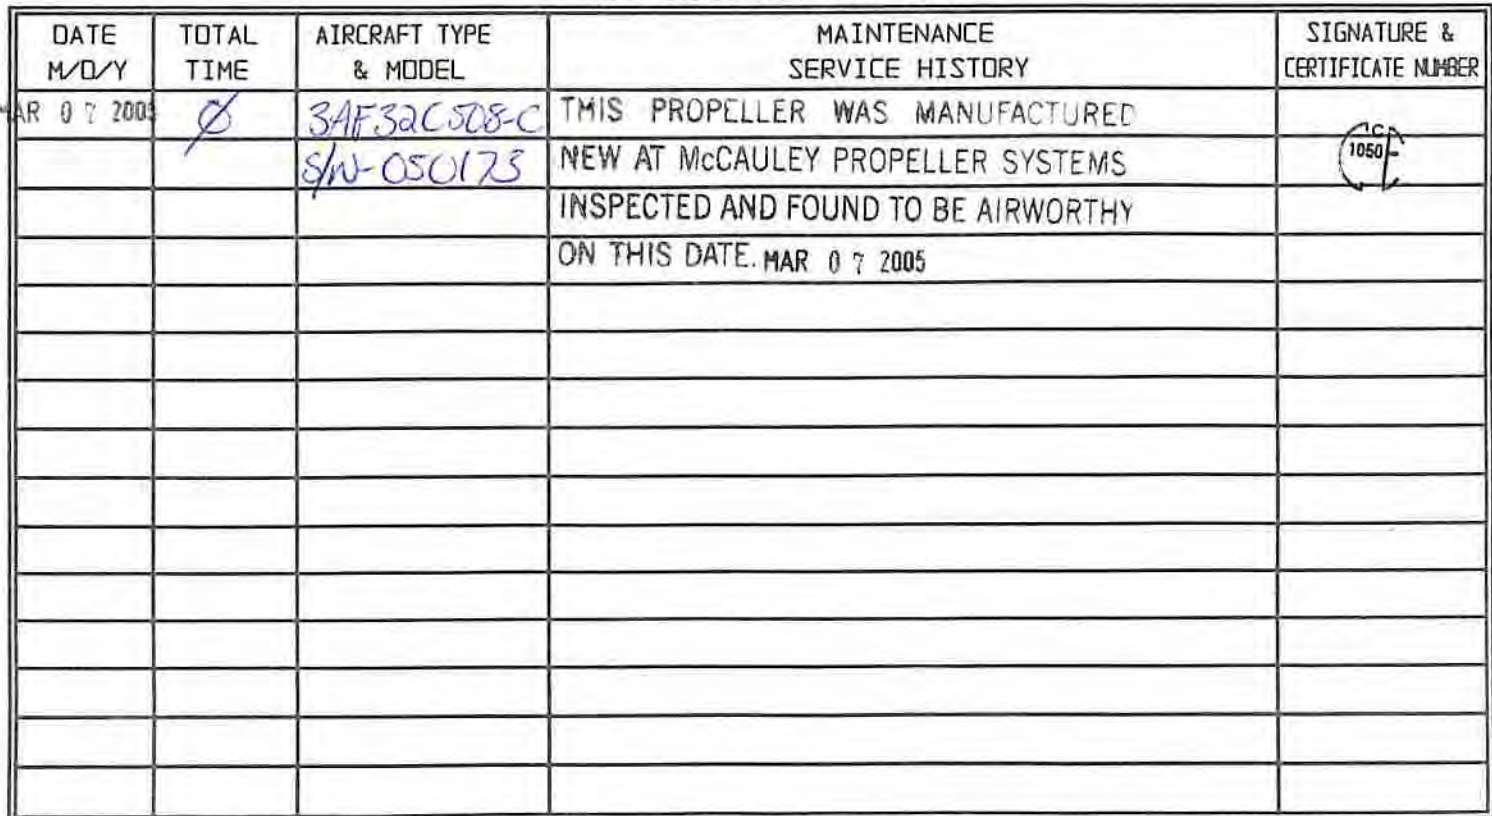 DATE M/D/Y TOTAL TIME AIRCRAFT TYPE & MODEL MAINTENANCE SERVICE HISTORY SIGNATURE & CERTIFICATE NUMBER
MAR 07 2005 Ø 3AF32C508-C THIS PROPELLER WAS MANUFACTURED
S/N-050173 NEW AT McCAULEY PROPELLER SYSTEMS 1050
INSPECTED AND FOUND TO BE AIRWORTHY
ON THIS DATE. MAR 07 2005